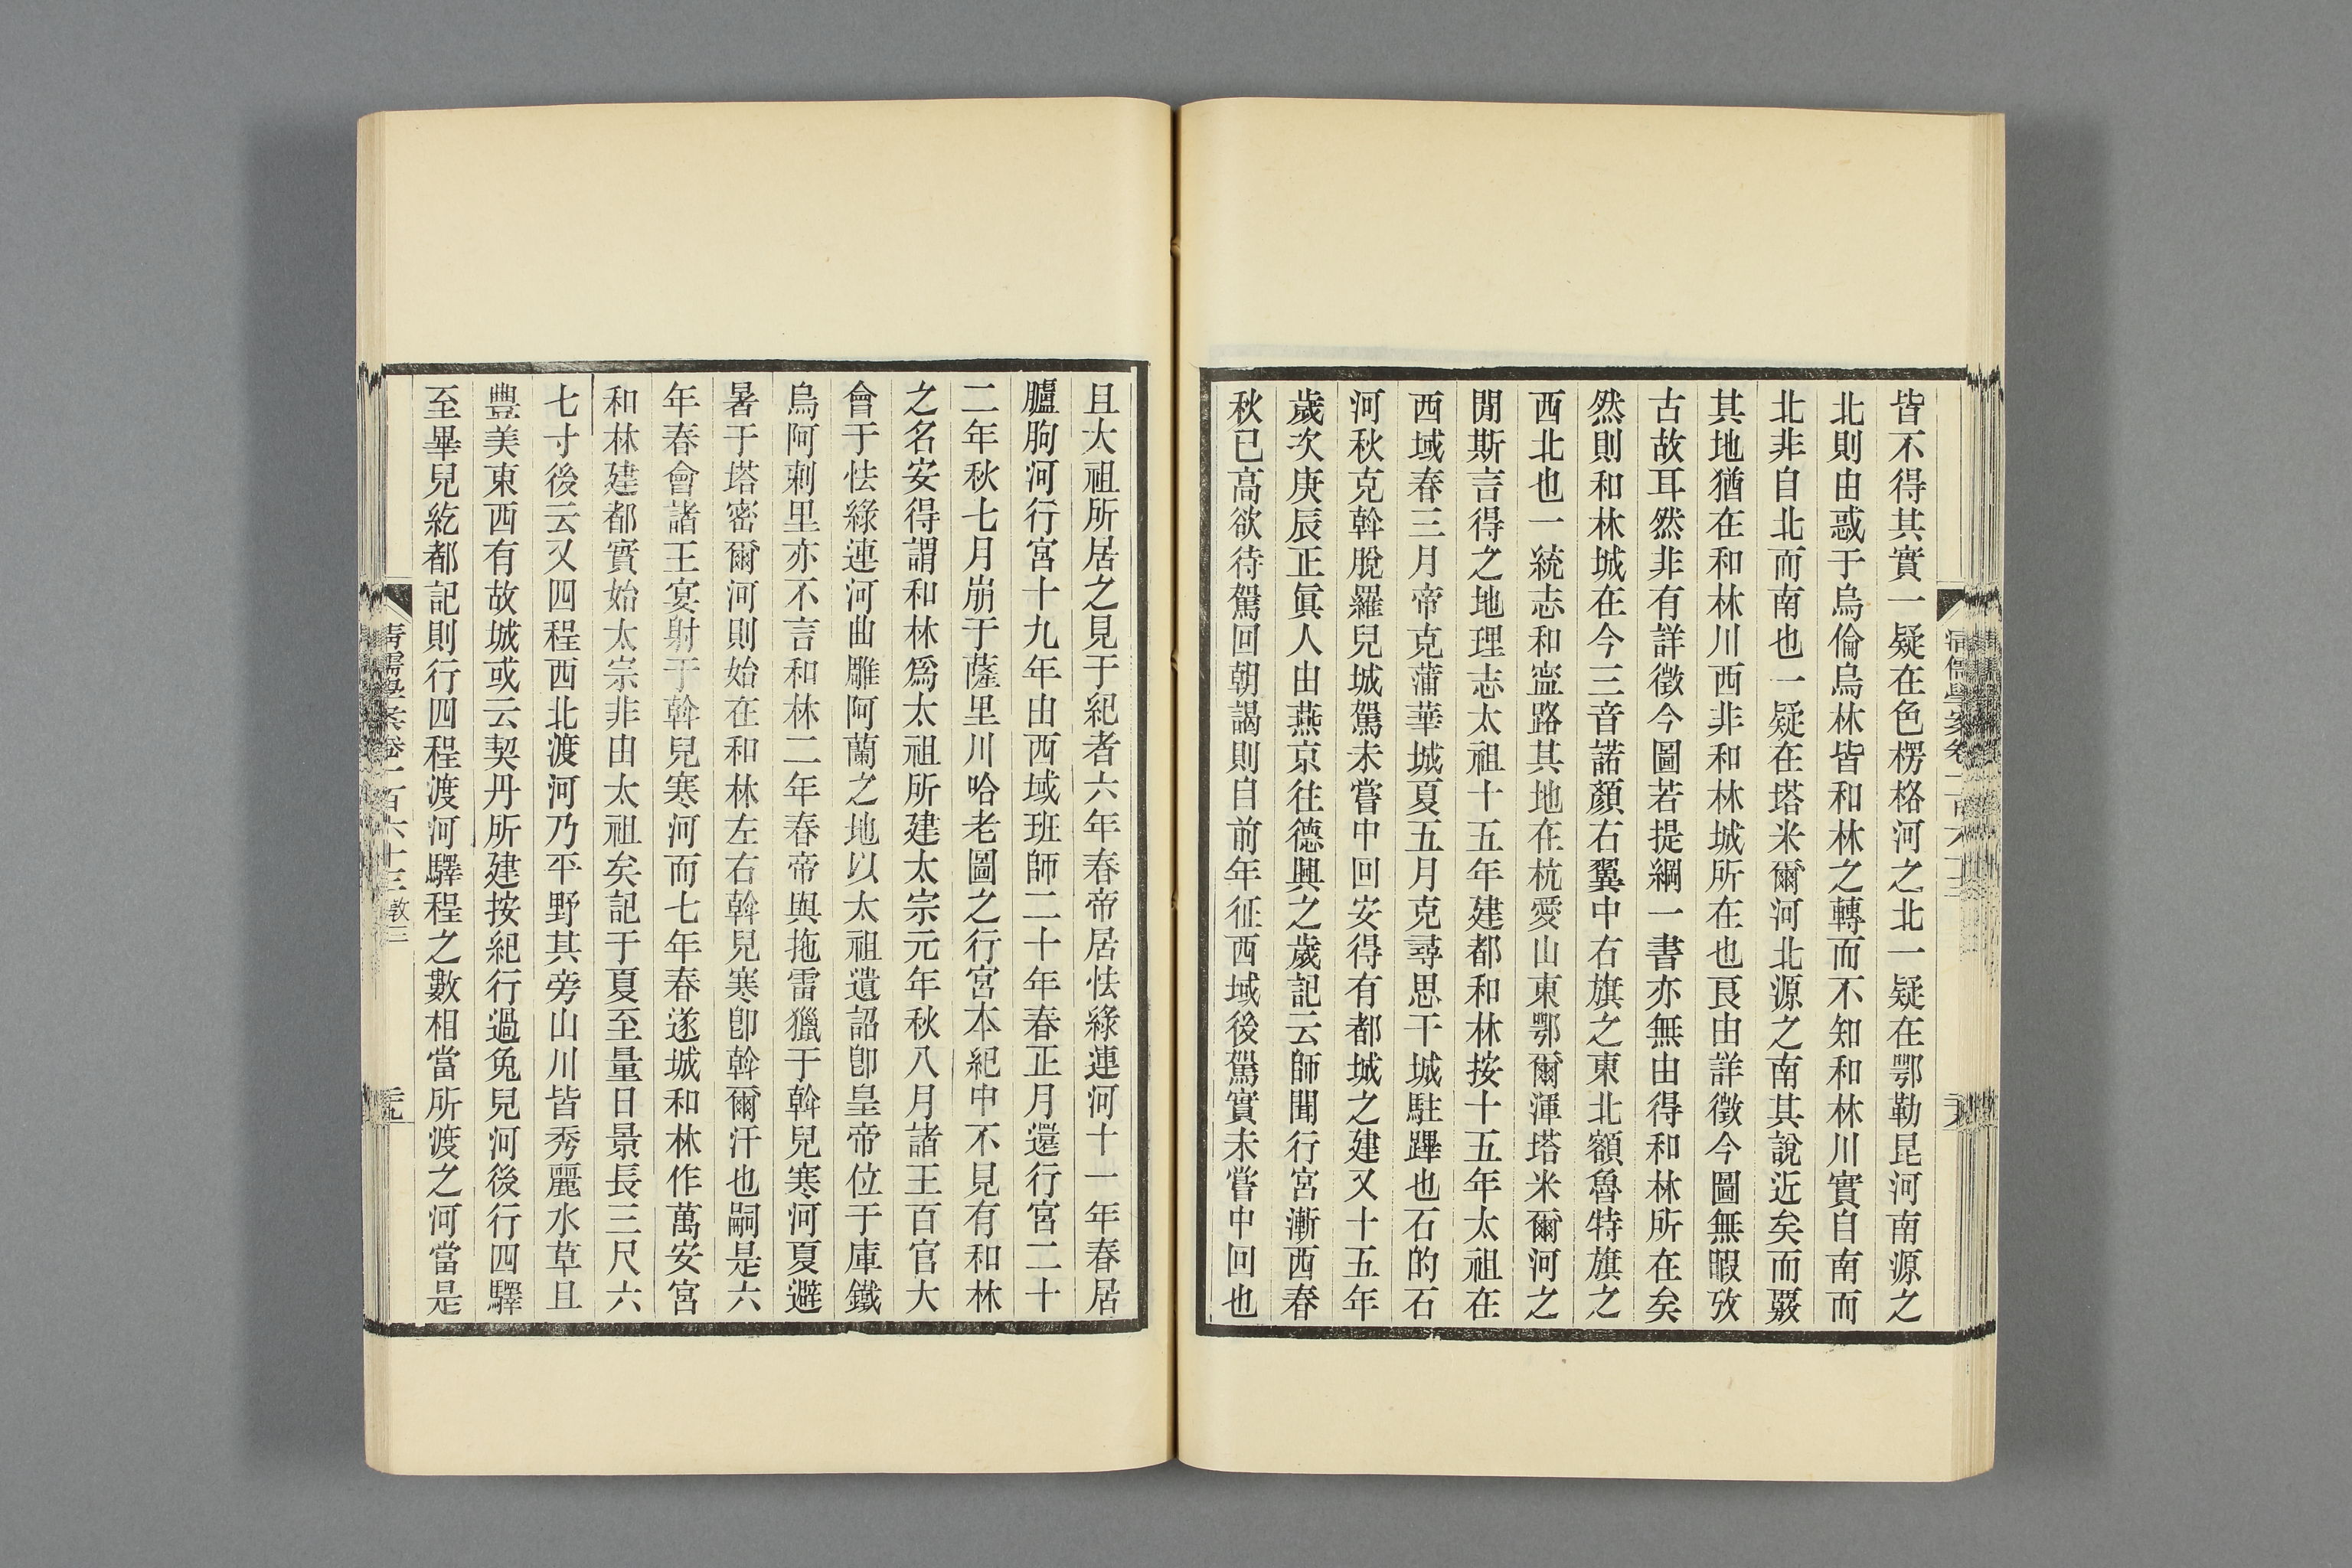 皆不得其實一疑在色楞格河之北一疑在鄂勒昆河南源之
北則由惑于烏倫烏林皆和林之轉而不知和林川實自南而
北非自北而南也一疑在塔米爾河北源之南其說近矣而覈
其地猶在和林川西非和林城所在也良由詳徵今圖無暇攷
古故耳然非有詳徵今圖若提綱一書亦無由得和林所在矣
然則和林城在今三音諾顏右翼中右旗之東北額魯特旗之
西北也一統志和寍路其地在杭愛山東鄂爾渾塔米爾河之
閒斯言得之地理志太祖十五年建都和林按十五年太祖在
西域春三月帝克蒲華城夏五月克尋思干城駐蹕也石的石
河秋克斡脫羅兒城駕未嘗中回安得有都城之建又十五年
歲次庚辰正眞人由燕京往德興之歲記云師聞行宮漸西春
秋已高欲待駕回朝謁則自前年征西域後駕實未嘗中回也
且太祖所居之見于紀者六年春帝居怯綠連河十一年春居
臚朐河行宮十九年由西域班師二十年春正月還行宮二十
二年秋七月崩于薩里川哈老圖之行宮本紀中不見有和林
之名安得謂和林爲太祖所建太宗元年秋八月諸王百官大
會于怯綠連河曲雕阿蘭之地以太祖遺詔卽皇帝位于庫鐵
烏阿剌里亦不言和林二年春帝與拖雷獵于斡兒寒河夏避
暑于塔密爾河則始在和林左右斡兒寒卽斡爾汗也嗣是六
年春會諸王宴射于斡兒寒河而七年春遂城和林作萬安宮
和林建都實始太宗非由太祖矣記于夏至量日景長三尺六
七寸後云又四程西北渡河乃平野其旁山川皆秀麗水草且
豐美東西有故城或云契丹所建按紀行過兔兒河後行四驛
至畢兒紇都記則行四程渡河驛程之數相當所渡之河當是
清儒學案卷一百六十三 敎三